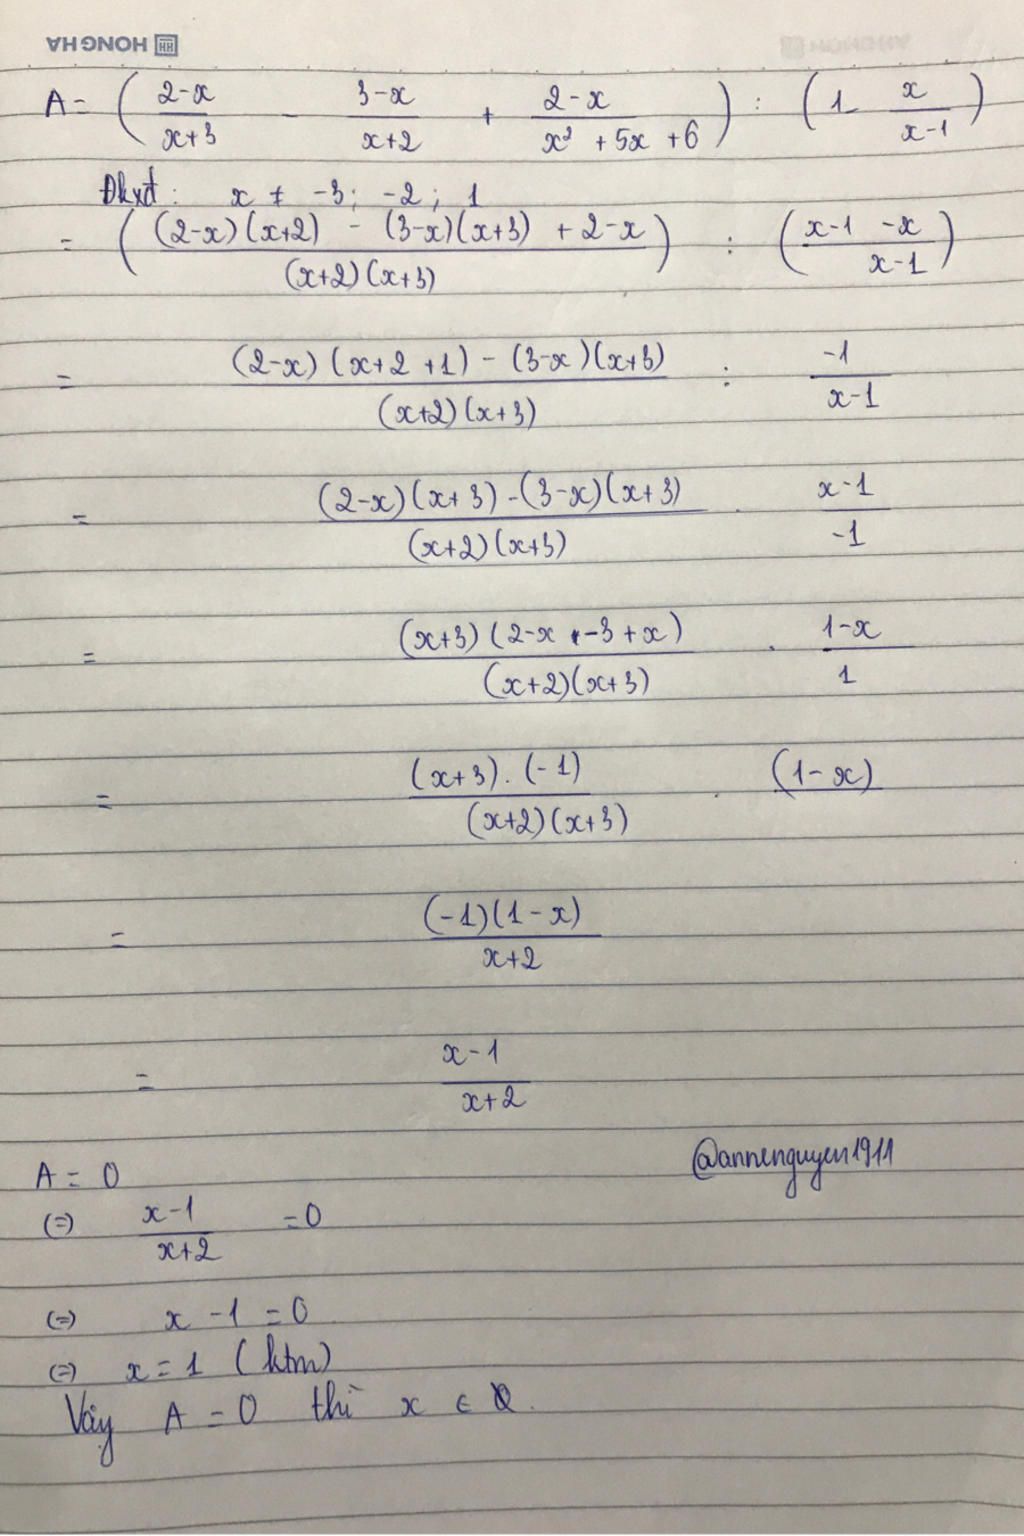 HONG HA
A = ( (2-x)/(x+3) - (3-x)/(x+2) + (2-x)/(x² + 5x + 6) ) : ( 1 - x/(x-1) )
Đkxđ: x ≠ -3; -2; 1
= ( ((2-x)(x+2) - (3-x)(x+3) + 2-x)/((x+2)(x+3)) ) : ( (x-1-x)/(x-1) )
= ((2-x)(x+2+1) - (3-x)(x+3))/((x+2)(x+3)) : (-1)/(x-1)
= ((2-x)(x+3) - (3-x)(x+3))/((x+2)(x+3)) . (x-1)/(-1)
= ((x+3)(2-x-3+x))/((x+2)(x+3)) . (1-x)/1
= ((x+3).(-1))/((x+2)(x+3)) . (1-x)
= ((-1)(1-x))/(x+2)
= (x-1)/(x+2)
@annenguyen1911
A = 0
(=) (x-1)/(x+2) = 0
(=) x - 1 = 0
(=) x = 1 (ktm)
Vậy A = 0 thì x ∈